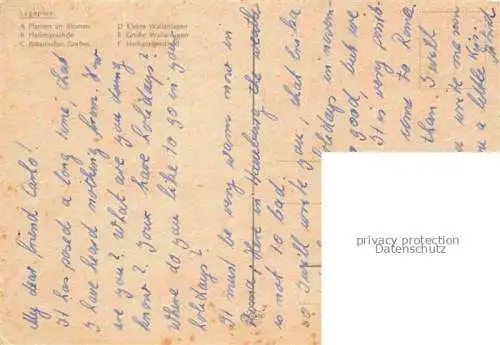 Lageplan:
A Planten un Blomen
B Heiligengeistfeld
C Botanischer Garten
D Kleine Wallanlagen
E Große Wallanlagen
F
My dear friend Carlo!
It has posed a long time, that
I have heard nothing from. How
are you? What are you doing
know? Your have holidays?
Where do you like to go in you
holidays?
It must be very warm now in
Roma, Here in Hamburg the weather
is not to bad.
I will write you, that
holidays in
good, but we
It is very
come to Rome
then. I will
write me soon
a little Kiss
privacy protection
Datenschutz